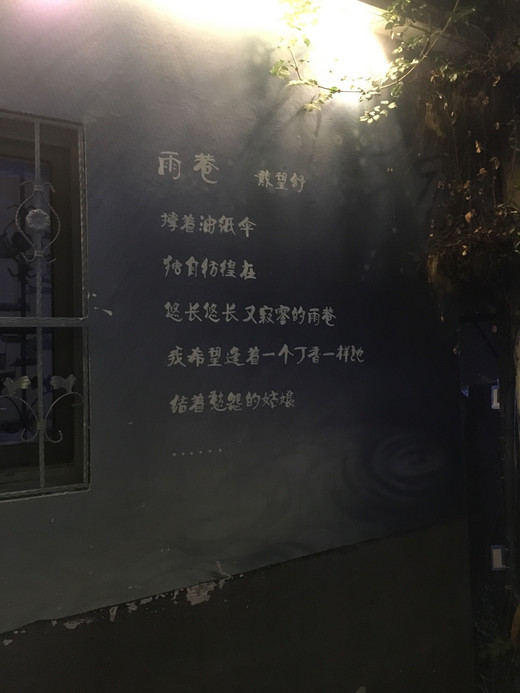 雨巷 戴望舒
撑着油纸伞
独自彷徨在
悠长悠长又寂寥的雨巷
我希望逢着一个丁香一样地
结着愁怨的姑娘
······